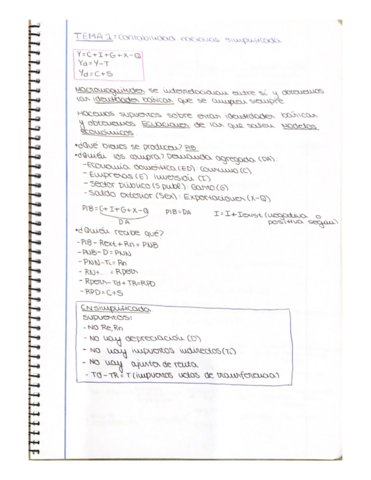 TEMA 1: Contabilidad nacional simplificada
Y=C+I+G+X-Q
Yd=Y-T
Yd=C+S
Macromagnitudes se interrelacionan entre sí y obtenemos
las identidades básicas que se cumplen siempre
Hacemos supuestos sobre estas identidades básicas
y obtenemos ecuaciones de las que salen Modelos
económicos.
•¿Qué bienes se producen? PIB
•¿Quién los compra? Demanda agregada (DA)
-Economía doméstica (ED): Consumo (C)
-Empresas (E) Inversión (I)
-Sector público (S.publ): Gasto (G)
-Saldo exterior (Sex): Exportaciones (X-Q)
PIB=C+I+G+X-Q PIB=DA I=I+Iexist (negativa o
DA positiva según)
•¿Quién recibe qué?
-PIB-Rext+Rn=PNB
-PNB-D=PNN
-PNN-Ti=Rn
-RN+... = Rpers
-Rpers-Td+TR=RPD
-RPD=C+S
CN simplificada
Supuestos:
-No Re,Rn
-No hay depreciación (D)
-No hay impuestos indirectos (Ti)
-No hay ajustes de renta
-Td-TR=T (impuestos netos de transferencia)